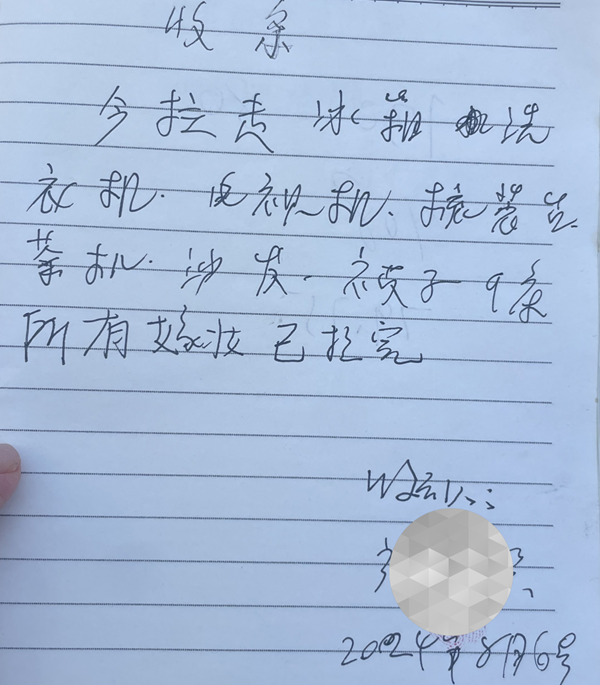 收条
今拉走冰箱 洗
衣机. 电视机.
茶机. 沙发. 被子9条
所有嫁妆已拉完
2024年8月6号